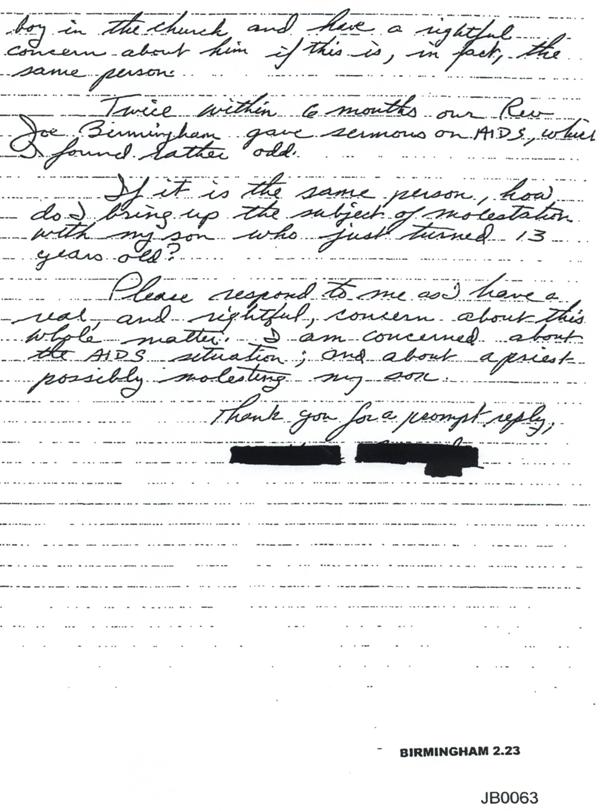 boy in the church, and have a rightful
concern about him if this is, in fact, the
same person.
Twice within 6 months our Rev
Joe Birmingham gave sermons on AIDS, which
I found rather odd.
If it is the same person, how
do I bring up the subject of molestation
with my son who just turned 13
years old?
Please respond to me as I have a
real, and rightful, concern about this
whole matter. I am concerned about
the AIDS situation; and about a priest
possibly molesting my son.
Thank you for a prompt reply,
BIRMINGHAM 2.23
JB0063